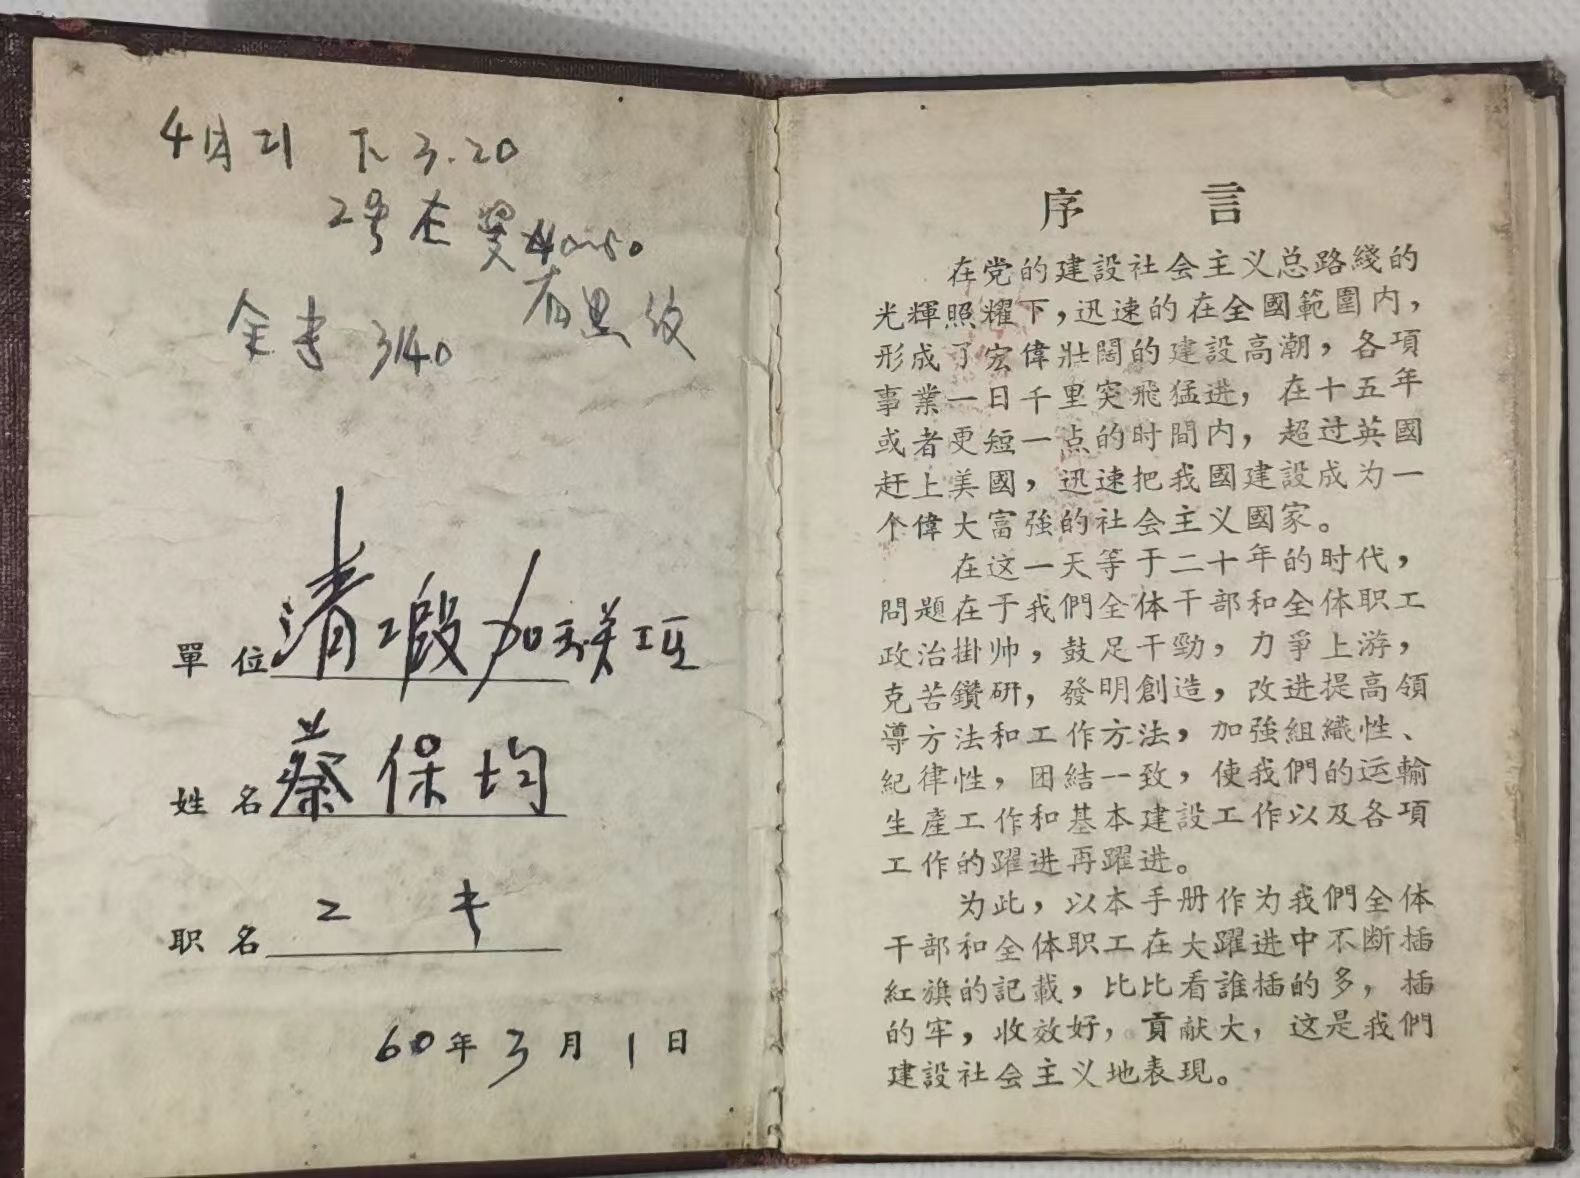 4月21 下3.20
2号在
40-50
有黑纹
全 3140
單位 清工段加
姓名 蔡保均
职名 工
60年3月1日
序 言
在党的建設社会主义总路綫的
光輝照耀下,迅速的在全國範圍内,
形成了宏偉壯闊的建設高潮,各項
事業一日千里突飛猛进,在十五年
或者更短一点的时間内,超过英國
赶上美國,迅速把我國建設成为一
个偉大富強的社会主义國家。
在这一天等于二十年的时代,
問題在于我們全体干部和全体职工
政治掛帅,鼓足干勁,力爭上游,
克苦鑽研,發明創造,改进提高領
導方法和工作方法,加強組織性、
紀律性,团結一致,使我們的运輸
生產工作和基本建設工作以及各項
工作的躍进再躍进。
为此,以本手册作为我們全体
干部和全体职工在大躍进中不断插
紅旗的記載,比比看誰插的多,插
的牢,收效好,貢献大,这是我們
建設社会主义地表現。